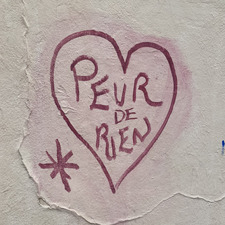 PEUR
DE
RIEN